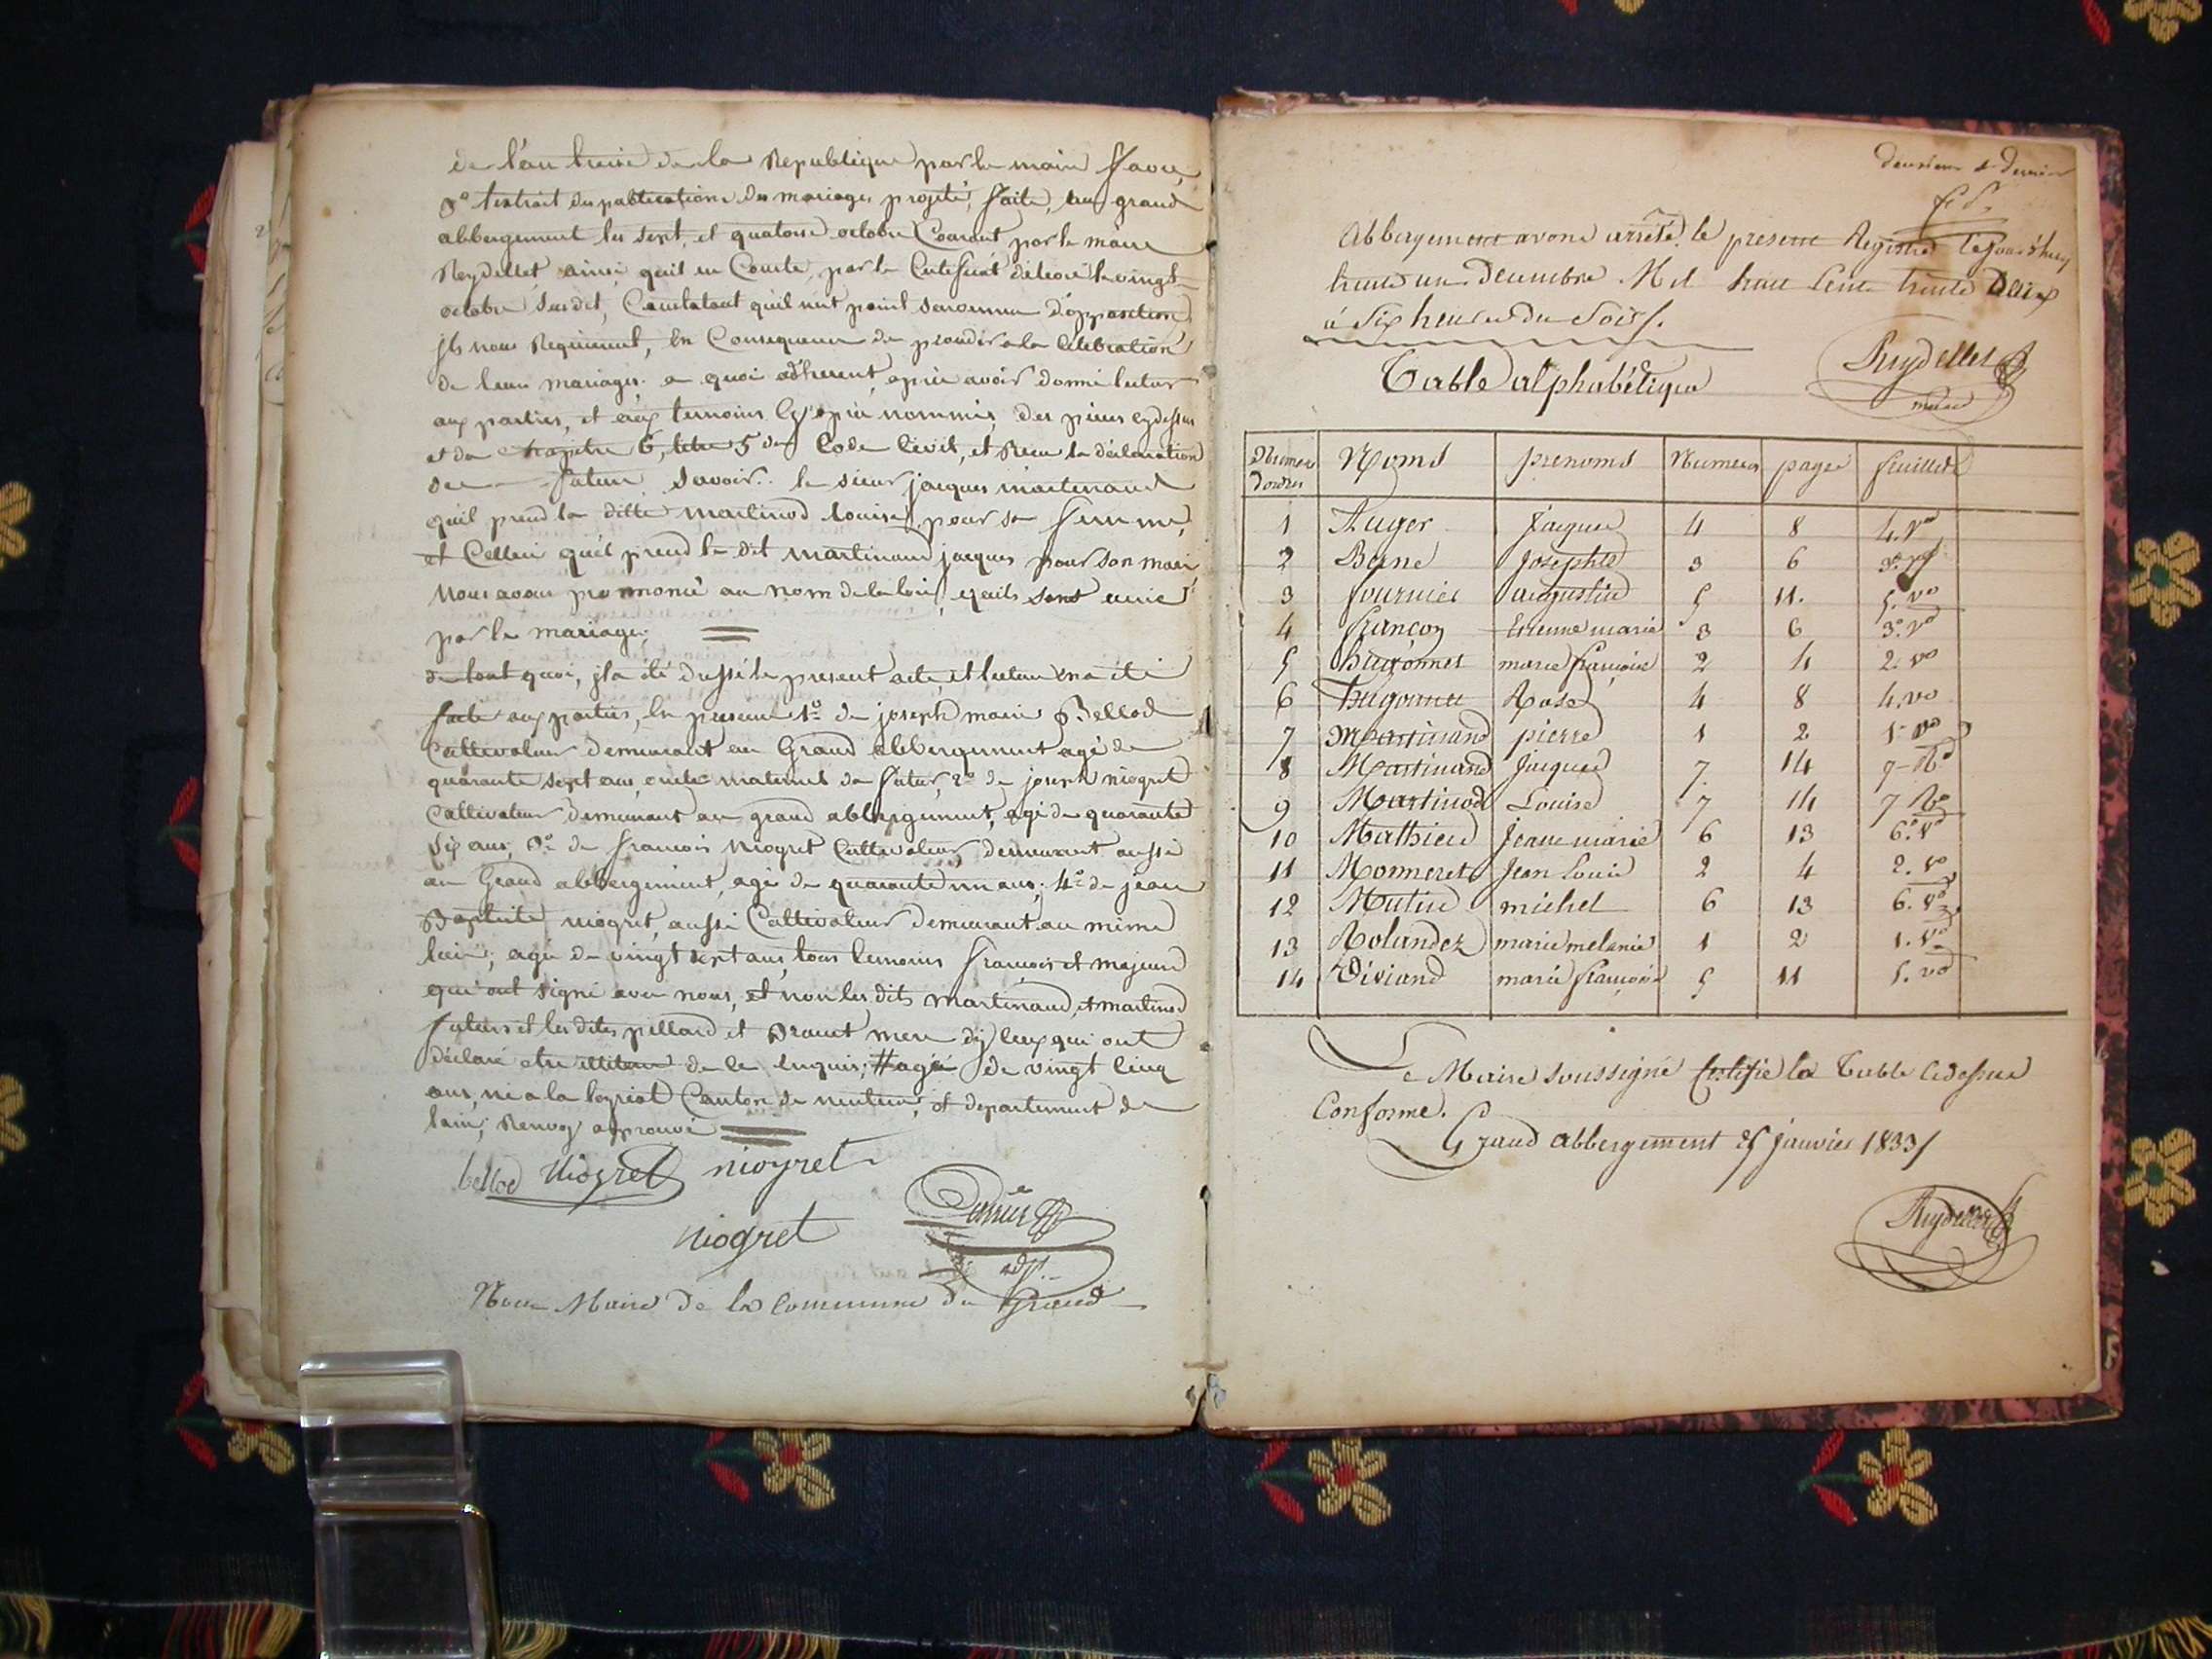 de l'an treize de la Republique par le maire favre,
3° l'extrait des publications du mariage projeté, faite, au grand
abbergement les sept, et quatorze octobre Courant par le maire
Reydellet, ainsi quil en Conste, par le Certificat délivré le vingt
octobre susdit, Constatant quil nest point survenue d'opposition
jls nous Requierent, en Consequence de proceder a la Célébration
de leur mariage. a quoi adherent, après avoir donné lecture
aux parties, et aux temoins cy après nommés, des pieces cy dessus
et du chapitre 6, titre 5 du Code Civil, et Recu la déclaration
des futurs Savoir.. le sieur jacques martinand
quil prend la ditte martinod louise, pour sa femme,
et Celleci quel prend le dit martinand jacques pour son mari
Nous avons prononcé au nom de la loi, quils sont unis
par le mariage;
de tout quoi, jl a été dressé le present acte, et lecture en a été
faite aux parties, en presence 1° de joseph marie Bellod
Cultivateur demeurant au Grand abbergement agé de
quarante sept ans, oncle maternel du futur, 2° de joseph niogret
Cultivateur demeurant au grand abbergement, agé de quarante
six ans, 3° de francois niogret Cultivateur, demeurant aussi
au Grand abbergement, agé de quarante un ans; 4° de jean
Baptiste niogret, aussi Cultivateur demeurant au même
lieu; agé de vingt sept ans, tous temoins francois et majeurs
qui ont signé avec nous, et non les dits martinand, et martinod
futurs et les dites pilland et mere d'y ceux qui ont
déclaré etre illiteré de ce enquis; # agé de vingt cinq
ans, né a la Canton de et departement de
lain; Renvoy approuvé
bellod Niogret niogret
niogret
adjt.
Nous Maire de la Commune du Grand
deuxieme et dernier
Abbergement avons arrêté le présent Registre cejourd'huy
trente un Decembre Mil huit Cent trente Deux
à Six heures du Soir.
Reydellet
maire
Table alphabétique
Numero Dordres Noms prenoms Numeros pages feuillets
1 Auger Jacques 4 8 4. Vo
2 Berne Josephte 3 6 3. Vo
3 fournier augustin 5 11. 5. vo
4 françon Etienne marie 3 6 3° Vo
5 hugonnet marie françoise 2 4 2. vo
6 hugonnet Rose 4 8 4. vo
7 Martinand pierre 1 2 1 vo
8 Martinand Jacques 7. 14 7 Vo
9 Martinod Louise 7 14 7 Vo
10 Mathieu Jeanne marie 6 13 6° Vo
11 Monneret Jean Louis 2 4 2. vo
12 Mutin michel 6 13 6. Vo
13 Rolandez marie melanie 1 2 1. Vo
14 Viviand marie françoise 5 11 5. vo
Le Maire soussigné Certifie la Table cidessus
Conforme.
Grand abbergement 25 janvier 1833
Reydellet